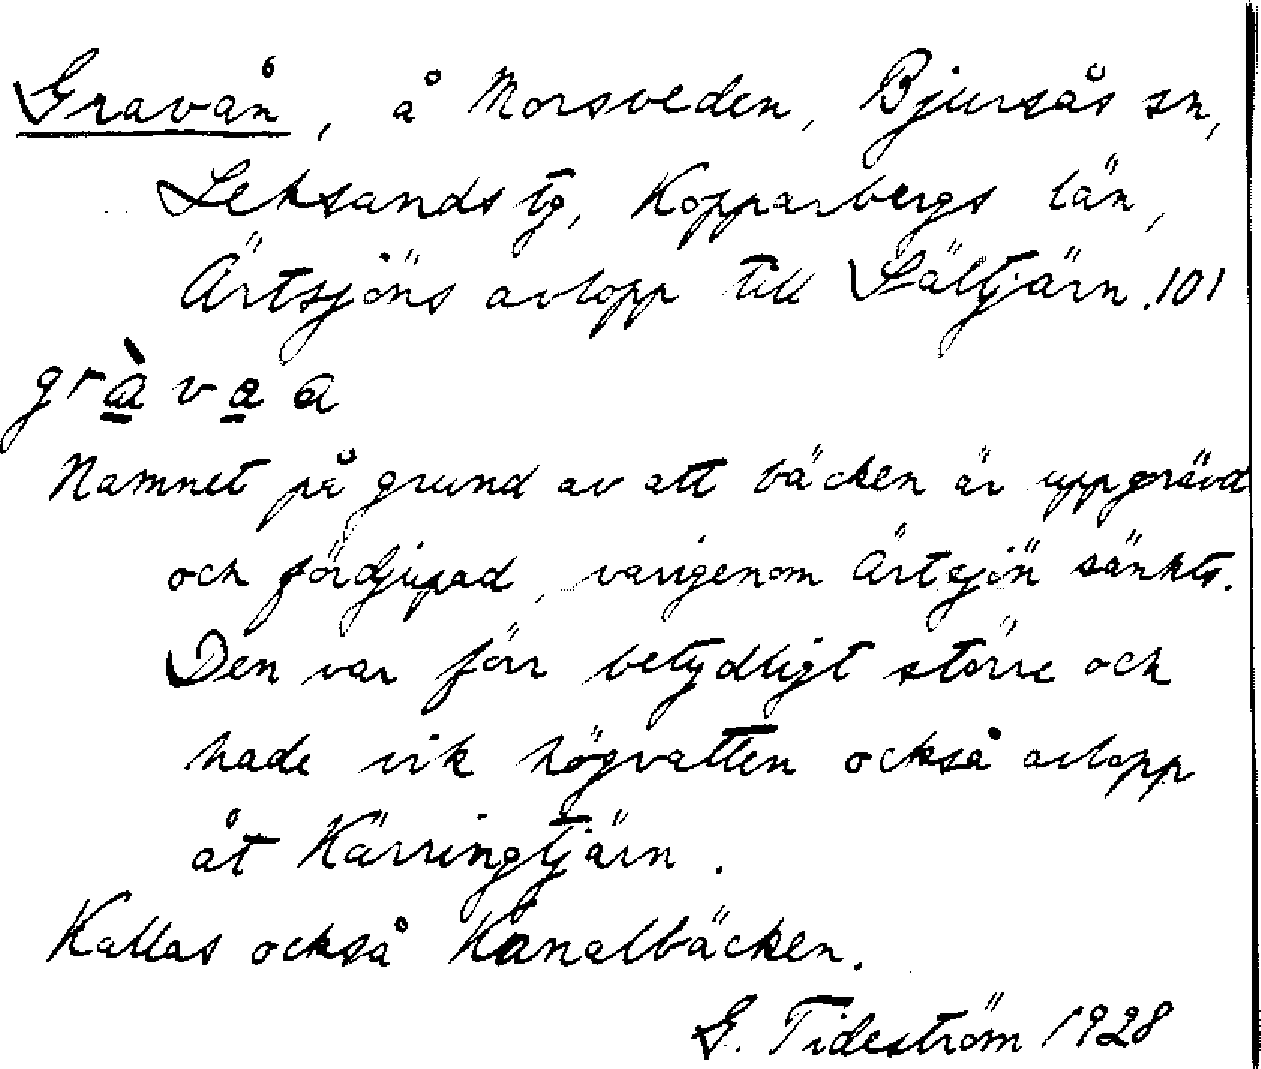 Gravån, å Morsveden, Bjursås sn,
Leksands tg, Kopparbergs län,
Ärtsjöns avlopp till Sältjärn. 101
gràvaa
Namnet på grund av att bäcken är uppgrävd
och fördjupad, varigenom Ärtsjön sänkts.
Den var förr betydligt större och
hade vik högvatten också avlopp
åt Kärringtjärn.
Kallas också Kanalbäcken.
G. Tideström 1928